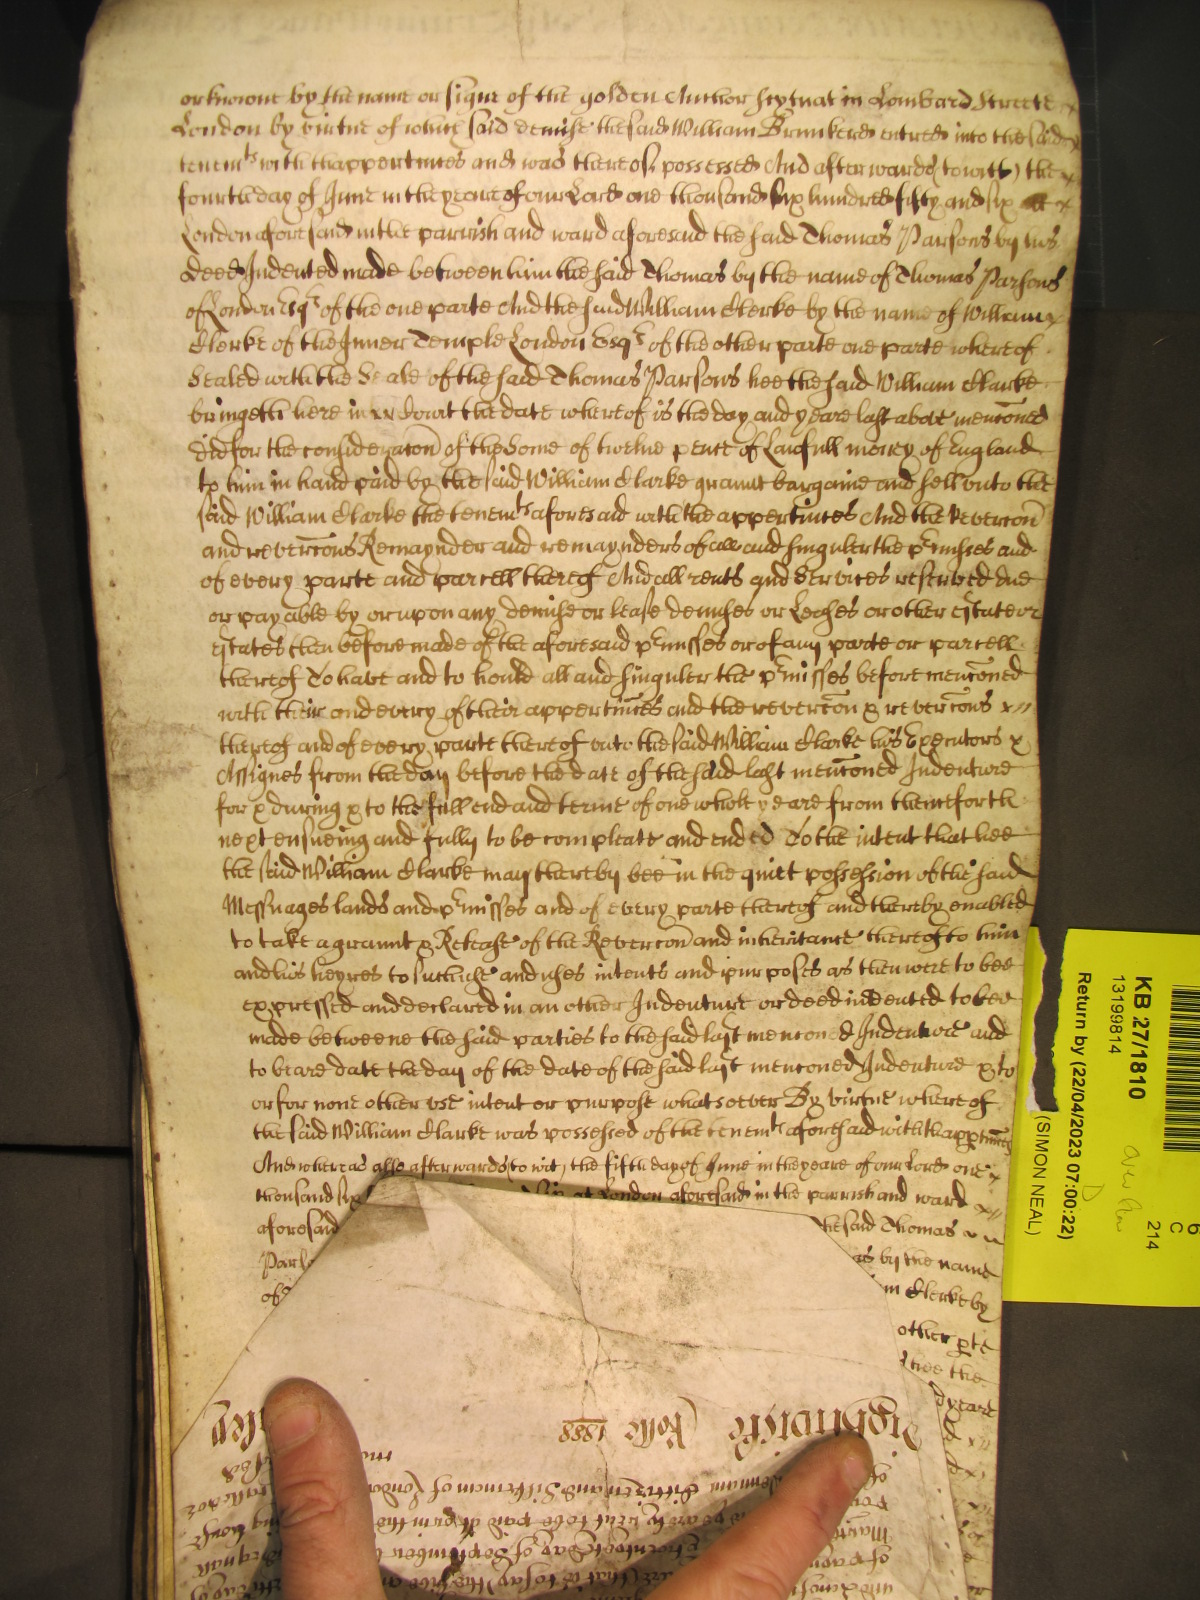 or knowne by the name or signe of the golden Anchor scytuat in Lombard Streete
London by virtue of which said demise the said William Brunkerd entred into the said
tenemts with thappertinnces and was thereof possessed And afterwards (to witt) the
fourth day of June in the yeare of our Lord one thousand six hundred fifty and six att
London aforesaid in the parrish and ward aforesaid the said Thomas Parsons by his
deed Indented made betweene him the said Thomas by the name of Thomas Parsons
of London Esqr of the one parte And the said William Clerke by the name of William
Clerke of the Inner Temple London Esqr of the other parte one parte whereof
Sealed with the Seale of the said Thomas Parsons hee the said William Clarke
bringeth here into Court the date whereof is the day and yeare last above mencõned
did for the consideracõn of the Some of twelve pence of Lawfull money of England
to him in hand paid by the said William Clarke graunt bargaine and sell unto the
said William Clarke the tenemts aforesaid with the appertinces And the revercõn
and revercõns Remaynder and remaynders of all and singuler the pr̃misses and
of every parte and parcell thereof And all rents and Services reserved due
or payable by or upon any demise or lease demises or Leases or other Estate or
Estates then before made of the aforesaid pr̃misses or of any parte or parcell
thereof To have and to hould all and singuler the pr̃misses before mencõned
with their and every of their appertinnces and the revercõn & revercõns
thereof and of every parte thereof unto the said William Clarke his Executors &
Assignes from the day before the date of the said last mencõned Indenture
for & during & to the full end and terme of one whole yeare from thenceforth
next ensueing and fully to be compleate and ended To the intent that hee
the said William Clarke may thereby bee in the quiet possession of the said
Messuages lands and pr̃misses and of every parte thereof and thereby enabled
to take a graunt & Release of the Revercõn and inheritance thereof to him
and his heyres to such use and uses intents and purposes as then were to bee
expressed and declared in an other Indenture or deed indented to bee
made betweene the said parties to the said last mencõned Indenture and
to beare date the day of the date of the said last mencõned Indenture & to
or for none other use intent or purpose whatsoever By virtue whereof
the said William Clarke was possessed of the tenemts aforesaid with thappertinnces
And whereas also afterwards to wit, the fifth day of June in the yeare of our Lord one
thousand six at London aforesaid in the parrish and ward
aforesaid the said Thomas
Pars by the name
of Clerke by
other pte
the
yeare
KB 27/1810
13199814
Return by (22/04/2023 07:00:22)
(SIMON NEAL)
6
C
214
Rolle 1888
Cittizen and Silkeman of London
day of September
That is to say